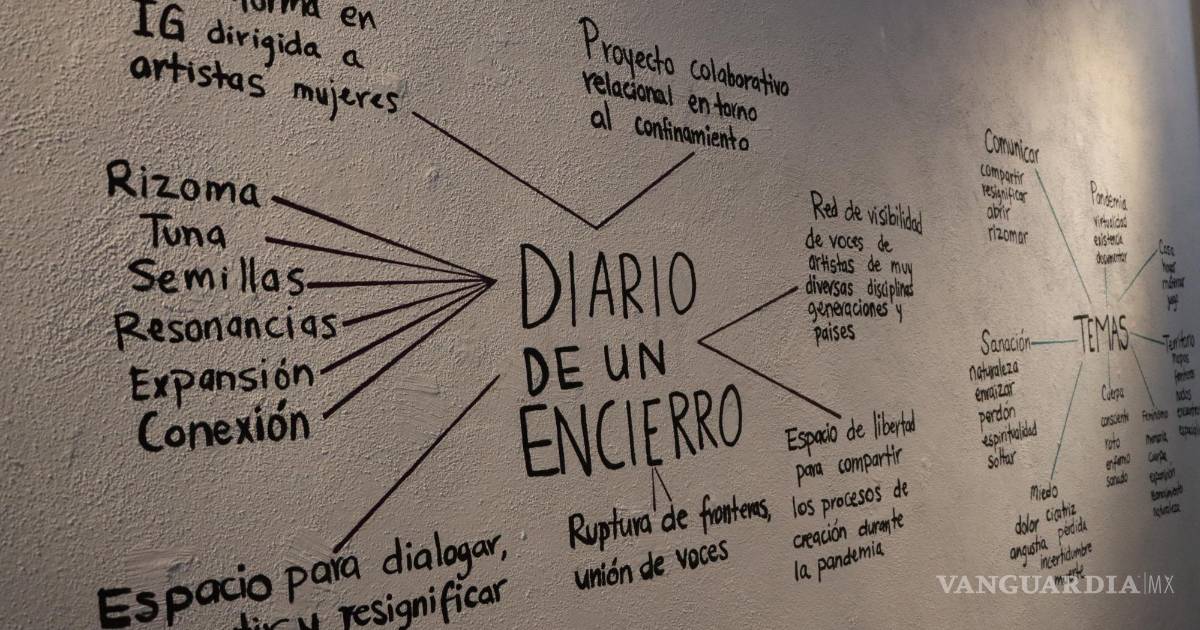 en
IG dirigida a
artistas mujeres
Proyecto colaborativo
relacional en torno
al confinamiento
Rizoma
Tuna
Semillas
Resonancias
Expansión
Conexión
DIARIO
DE UN
ENCIERRO
Red de visibilidad
de voces de
artistas de muy
diversas disciplinas
generaciones y
paises
Espacio de libertad
para compartir
los procesos de
creación durante
la pandemia
Ruptura de fronteras,
unión de voces
Espacio para dialogar,
y resignificar
Comunicar
compartir
resignificar
abrir
rizomar
Pandemia
virtualidad
existencia
documentar
Casa
hogar
maternar
TEMAS
Sanación
naturaleza
enraizar
perdón
espiritualidad
soltar
Territorio
mapas
Cuerpo
consciente
roto
enfermo
sanado
Feminismo
memoria
cuerpo
expansión
Miedo
dolor cicatriz
angustia pérdida
incertidumbre
muerte
VANGUARDIA|MX